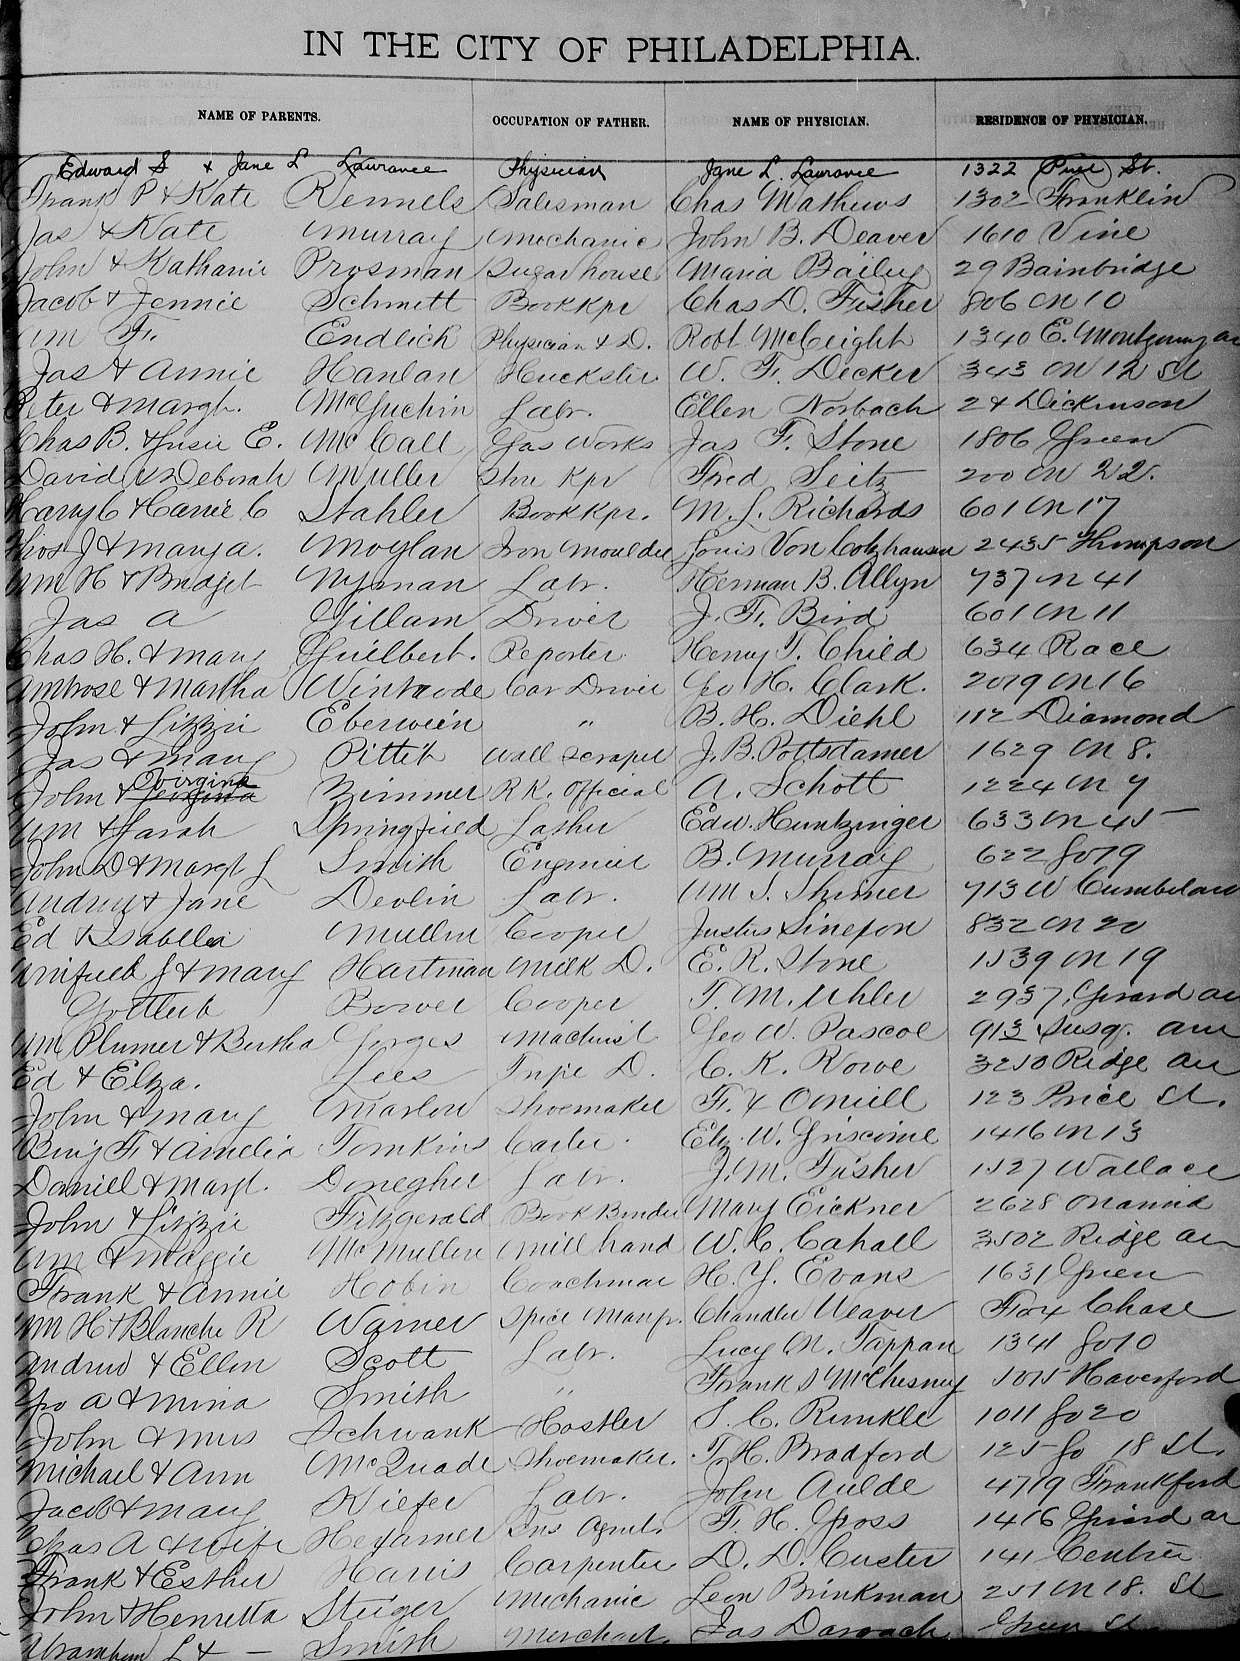 IN THE CITY OF PHILADELPHIA.
NAME OF PARENTS. OCCUPATION OF FATHER. NAME OF PHYSICIAN. RESIDENCE OF PHYSICIAN.
Edward S & Jane L Lawrance Physician Jane L. Lawrance 1322 Pine St.
Frank P & Kate Rennels Salesman Chas Mathews 1302 Franklin
Jas & Kate Murray Mechanic John B. Deaver 1610 Vine
John & Kathanie Prosman Sugar house Maria Bailey 29 Bainbridge
Jacob & Jennie Schmitt Book Kpr Chas D. Fisher 806 N 10
Wm F. Endlich Physician & D. Robt McCeight 1340 E. Montgomery av
Jas & Annie Hanlan Huckster W. F. Decker 343 N 12 St
Peter & Margt. McGuchin Labr. Ellen Norbach 24 Dickinson
Chas B. & Susie E. McCall Gas Works Jas F. Stone 1806 Green
David & Deborah Muller Shu Kpr Fred Seitz 200 N 22.
Harry C & Harrie C Stahler Book Kpr. M. S. Richards 601 N 17
Thos J & Mary A. Moylan Iron Moulder Louis Von Cotzhausen 2435 Thompson
Wm H & Bridget Nyman Labr. Herman B. Allyn 737 N 41
Jas A Gillam Driver J. F. Bird 601 N 11
Chas H. & Mary Guilbert. Reporter Henry T. Child 634 Race
Ambrose & Martha Wintrode Car Driver Geo H. Clark. 2019 N 16
John & Lizzie Eberwein " B. H. Diehl 112 Diamond
Jas & Mary Pittit Wall Scraper J. B. Pottsdamer 1629 N 8.
John & Virginia Zimmer RR. Official A. Schott 1224 N 7
Wm & Sarah Springfield Lasher Edw. Huntzinger 633 N 45
John D & Margt L Smith Engineer B. Murray 622 So 19
Andrew & Jane Devlin Labr. Wm S. Skinner 713 W Cumberland
Ed & Isabella Mullin Cooper Justus Sinexon 832 N 20
Winfield S & Mary Hartman Milk D. E. R. Stone 1539 N 19
Gottleib Bower Cooper T. M. Uhler 2937 Girard av
Wm Plumer & Bertha Gerges Machinist Geo W. Pascoe 913 Susq. Ave
Ed & Elza. Lees Tripe D. C. K. Rowe 3250 Ridge av
John & Mary Marlow Shoemaker F. X Oneill 123 Price St.
Benj F. & Amelia Tomkins Carter. Eliz. W. Griscome 1416 N 13
Daniell & Margt. Donegher Labr. J. M. Fisher 1527 Wallace
John & Lizzie Fitzgerald Book Binder Mary Eickner 2628
Wm & Maggie McMullin Mill hand W. C. Cahall 3502 Ridge av
Frank & Annie Hobin Coachman H. Y. Evans 1631 Green
Wm H & Blanche R Warner Spice Manfr. Chandler Weaver Fox Chase
Andrew & Ellen Scott Labr. Lucy N. Tappan 1341 So 10
Geo A & Mina Smith " Frank S McChesney 5015 Haverford
John & Mrs Schwank Hostler S. C. Runkle 1011 So 20
Michael & Ann McQuade Shoemaker. T. H. Bradford 125 So 18 St.
Jacob & Mary Kiefer Labr. John Aulde 4719 Frankford
Chas A & Wife Hegamer Ins Agent. F. H. Gross 1416 Girard av
Frank & Esther Harris Carpenter D. D. Custer 141 Centre
John & Henretta Steiger Mechanic Leon Brinkman 251 N 18. St
Abraham L & — Smith Merchant. Jas Darrach Green St.